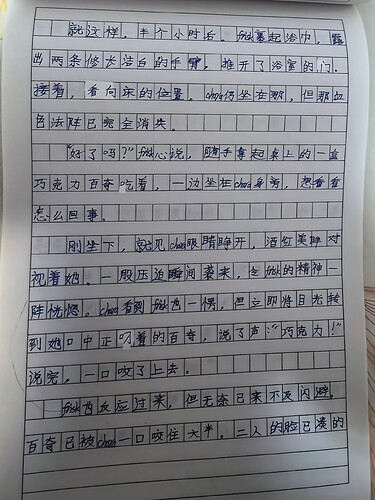 就这样，半个小时后，felix裹起浴巾，露
出两条修长洁白的手臂，推开了浴室的门。
接着，看向床的位置。chara仍坐在那，但那血
色法阵已完全消失。
"好了吗？"felix心说，随手拿起桌上的一盒
巧克力百奇吃着，一边坐在chara身旁，想看看
怎么回事。
刚坐下，就见chara眼睛睁开，酒红美眸对
视着她。一股压迫瞬间袭来，令felix的精神一
阵恍惚。chara看到felix也一愣，但立即将目光转
到她口中正叼着的百奇，说了声："巧克力！"
说完，一口咬了上去。
反应过来，但无奈已来不及闪避，
百奇已被chara一口咬住大半。二人的脸已凑的